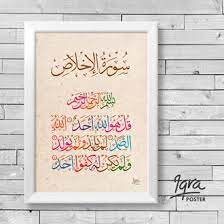 سُورَةُ الإِخْلَاصِ
بِسْمِ اللَّهِ الرَّحْمَٰنِ الرَّحِيمِ
قُلْ هُوَ اللَّهُ أَحَدٌ اللَّهُ
الصَّمَدُ لَمْ يَلِدْ وَلَمْ يُولَدْ
وَلَمْ يَكُنْ لَهُ كُفُوًا أَحَدٌ
Iqra
POSTER